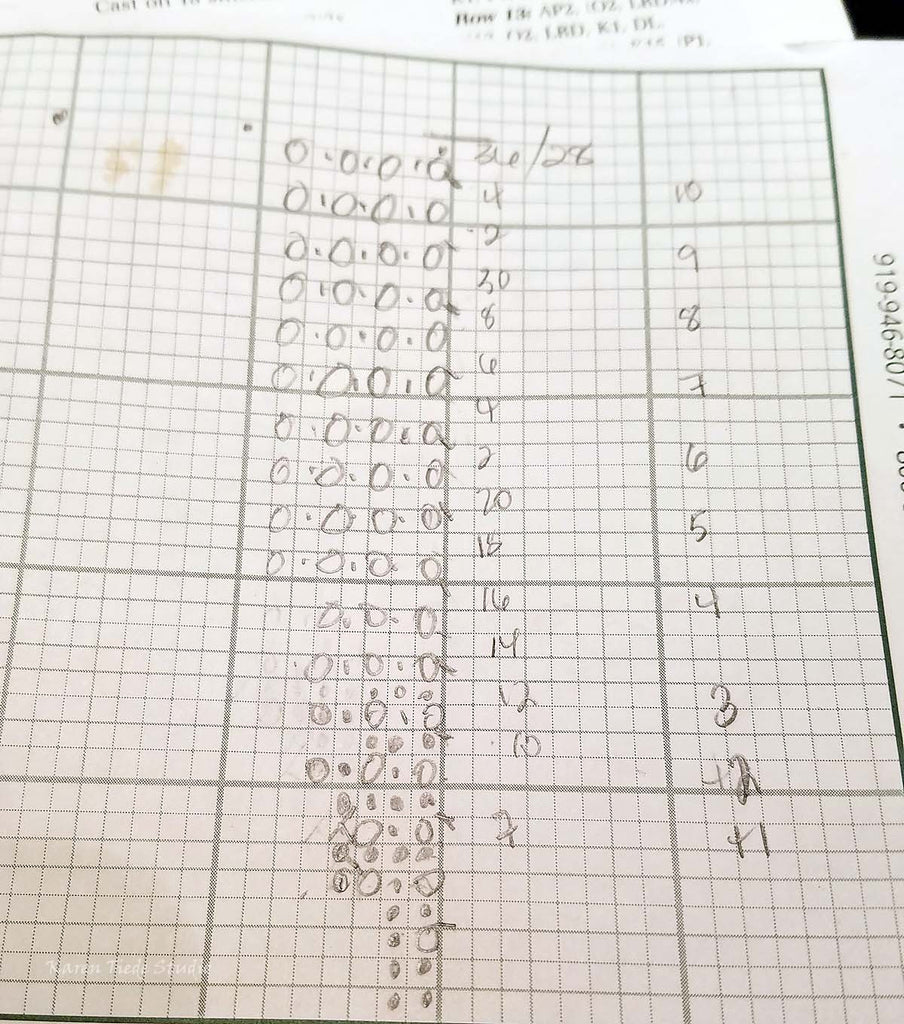 Cast on
Row 13: AP2,
LRD, K1, DL.
/28
4 10
2
9
30
8 8
6
7
4
2 6
20
5
18
16 4
14
12 3
10
+2
7 +1
919-946-8071
Karen Tiede Studio